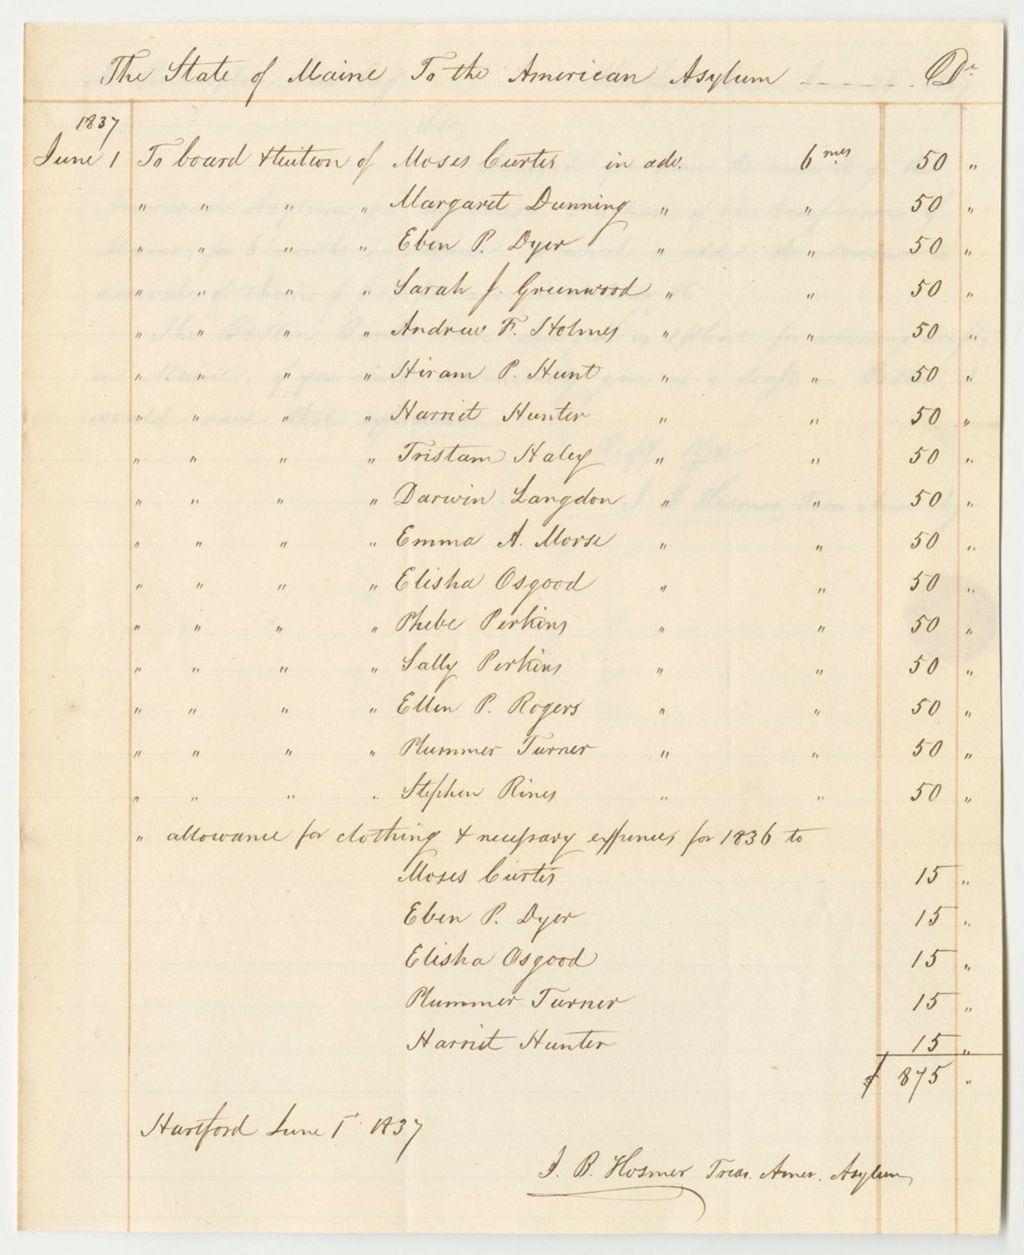 The State of Maine To the American Asylum ------ Dr
1837
June 1 To board & tuition of Moses Curtis in adv. 6 mos 50 "
" " " " Margaret Dunning " " 50 "
" " " " Eben P. Dyer " " 50 "
" " " " Sarah J. Greenwood " " 50 "
" " " " Andrew F. Holmes " " 50 "
" " " " Hiram P. Hunt " " 50 "
" " " " Harriet Hunter " " 50 "
" " " " Tristam Haley " " 50 "
" " " " Darwin Langdon " " 50 "
" " " " Emma A. Morse " " 50 "
" " " " Elisha Osgood " " 50 "
" " " " Phebe Perkins " " 50 "
" " " " Sally Perkins " " 50 "
" " " " Ellen P. Rogers " " 50 "
" " " " Plummer Turner " " 50 "
" " " " Stephen Rines " " 50 "
" allowance for clothing & necessary expenses for 1836 to
Moses Curtis 15 "
Eben P. Dyer 15 "
Elisha Osgood 15 "
Plummer Turner 15 "
Harriet Hunter 15 "
$ 875 "
Hartford June 1st 1837
J. B. Hosmer Treas. Amer. Asylum